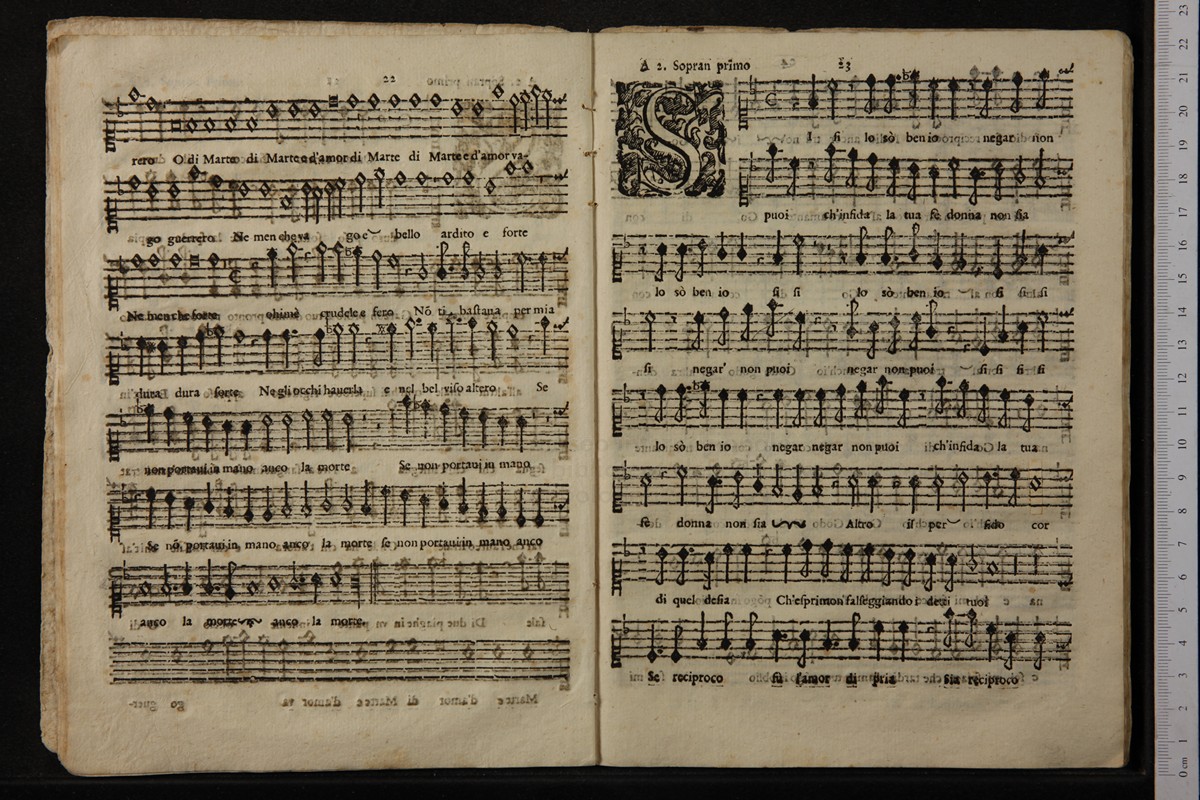 22
rero O di Marte o di Marte o d'amor di Marte di Marte e d'amor va-
go guerrero Ne men che va go e bello ardito e forte
Ne men che forte ohimè crudele e fero Nõ ti bastaua per mia
dura dura sorte Ne gli occhi hauerla e nel bel viso altero Se
non portaui in mano anco la morte Se non portaui in mano
Se nõ portaui in mano anco la morte se non portaui in mano anco
anco la morte anco la morte.
A 2. Sopran primo 23
SI si lo sò ben io negar non
puoi ch'infida la tua fè donna non sia
lo sò ben io si si lo sò ben io si si si
si negar' non puoi negar non puoi si si si si
lo sò ben io negar negar non puoi ch'infida la tua
fè donna non sia Altro è il per fido cor
di quel desia Ch'esprimon falseggiando i detti tuoi
Se reciproco fù l'amor di pria Sia reciproco
0 cm 1 2 3 4 5 6 7 8 9 10 11 12 13 14 15 16 17 18 19 20 21 22 23